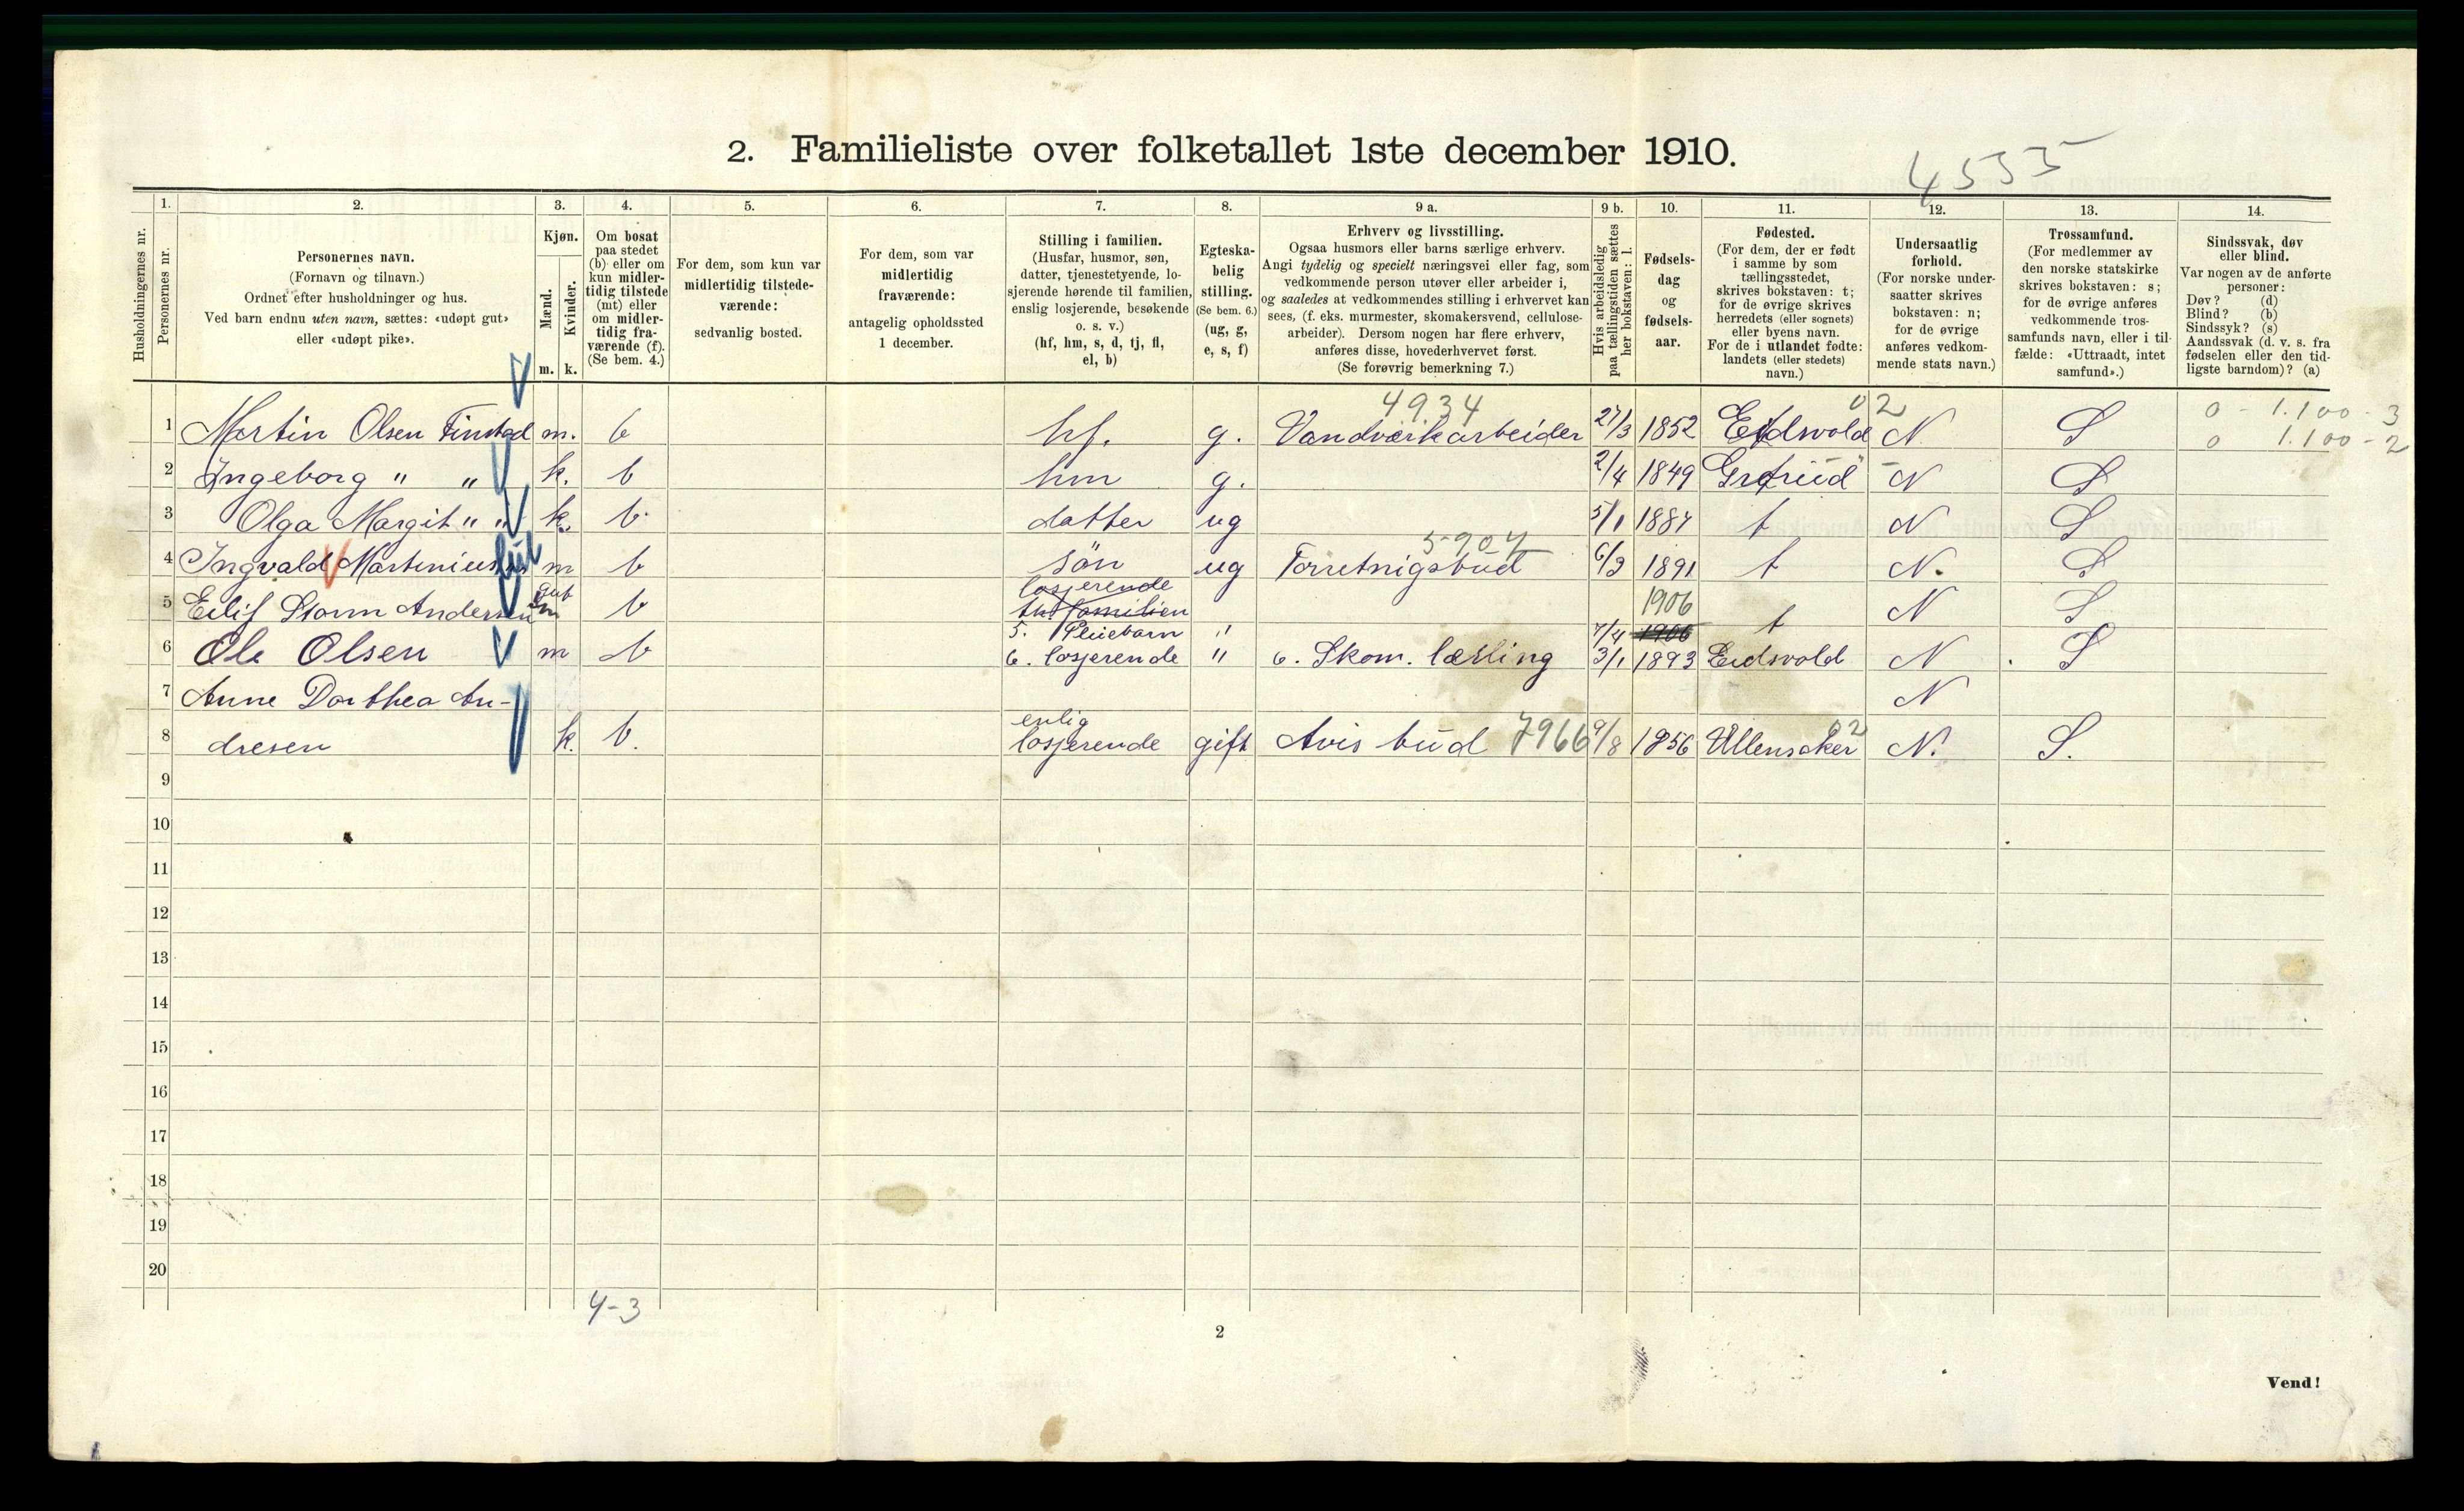 2. Familieliste over folketallet 1ste december 1910.
4535
Husholdningernes nr.
1.
Personernes nr.
2.
Personernes navn.
(Fornavn og tilnavn.)
Ordnet efter husholdninger og hus.
Ved barn endnu uten navn, sættes: «udøpt gut»
eller «udøpt pike».
3.
Kjøn.
Mænd.
Kvinder.
m. k.
4.
Om bosat
paa stedet
(b) eller om
kun midler-
tidig tilstede
(mt) eller
om midler-
tidig fra-
værende (f).
(Se bem. 4.)
5.
For dem, som kun var
midlertidig tilstede-
værende:
sedvanlig bosted.
6.
For dem, som var
midlertidig
fraværende:
antagelig opholdssted
1 december.
7.
Stilling i familien.
(Husfar, husmor, søn,
datter, tjenestetyende, lo-
sjerende hørende til familien,
enslig losjerende, besøkende
o. s. v.)
(hf, hm, s, d, tj, fl,
el, b)
8.
Egteska-
belig
stilling.
(Se bem. 6.)
(ug, g,
e, s, f)
9 a.
Erhverv og livsstilling.
Ogsaa husmors eller barns særlige erhverv.
Angi tydelig og specielt næringsvei eller fag, som
vedkommende person utøver eller arbeider i,
og saaledes at vedkommendes stilling i erhvervet kan
sees, (f. eks. murmester, skomakersvend, cellulose-
arbeider). Dersom nogen har flere erhverv,
anføres disse, hovederhvervet først.
(Se forøvrig bemerkning 7.)
9 b.
Hvis arbeidsledig
paa tællingstiden sættes
her bokstaven: l.
10.
Fødsels-
dag
og
fødsels-
aar.
11.
Fødested.
(For dem, der er født
i samme by som
tællingsstedet,
skrives bokstaven: t;
for de øvrige skrives
herredets (eller sognets)
eller byens navn.
For de i utlandet fødte:
landets (eller stedets)
navn.)
12.
Undersaatlig
forhold.
(For norske under-
saatter skrives
bokstaven: n;
for de øvrige
anføres vedkom-
mende stats navn.)
13.
Trossamfund.
(For medlemmer av
den norske statskirke
skrives bokstaven: s;
for de øvrige anføres
vedkommende tros-
samfunds navn, eller i til-
fælde: «Uttraadt, intet
samfund».)
14.
Sindssvak, døv
eller blind.
Var nogen av de anførte
personer:
Døv? (d)
Blind? (b)
Sindssyk? (s)
Aandssvak (d. v. s. fra
fødselen eller den tid-
ligste barndom)? (a)
4934 02 0 - 1.100 - 3
1 Martin Olsen Finstad m. b hf. g. Vandværkarbeider 27/3 1852 Eidsvold N S 0 1.100 - 2
2 Ingeborg " " k. b hm g. 2/4 1849 N S
3 Olga Margit " " k. b. datter ug 5/1 1887 t N S
5907
4 Ingvald Martinius m b sön ug Forretnigsbud 6/3 1891 t N. S
gut losjerende
5 Eilif Storm Andersen m b familien 1906 t N S
5. Pleiebarn " 7/4 1906
6 Ole Olsen m b 6. losjerende " 6. Skom. lærling 3/1 1893 Eidsvold N S
7 Anne Dorthea An- N
enlig 02
8 dresen k. b. losjerende gift Avis bud 7966 9/8 1856 Ullensaker N. S.
9
10
11
12
13
14
15
16
17
18
19
20
4-3
2
Vend!